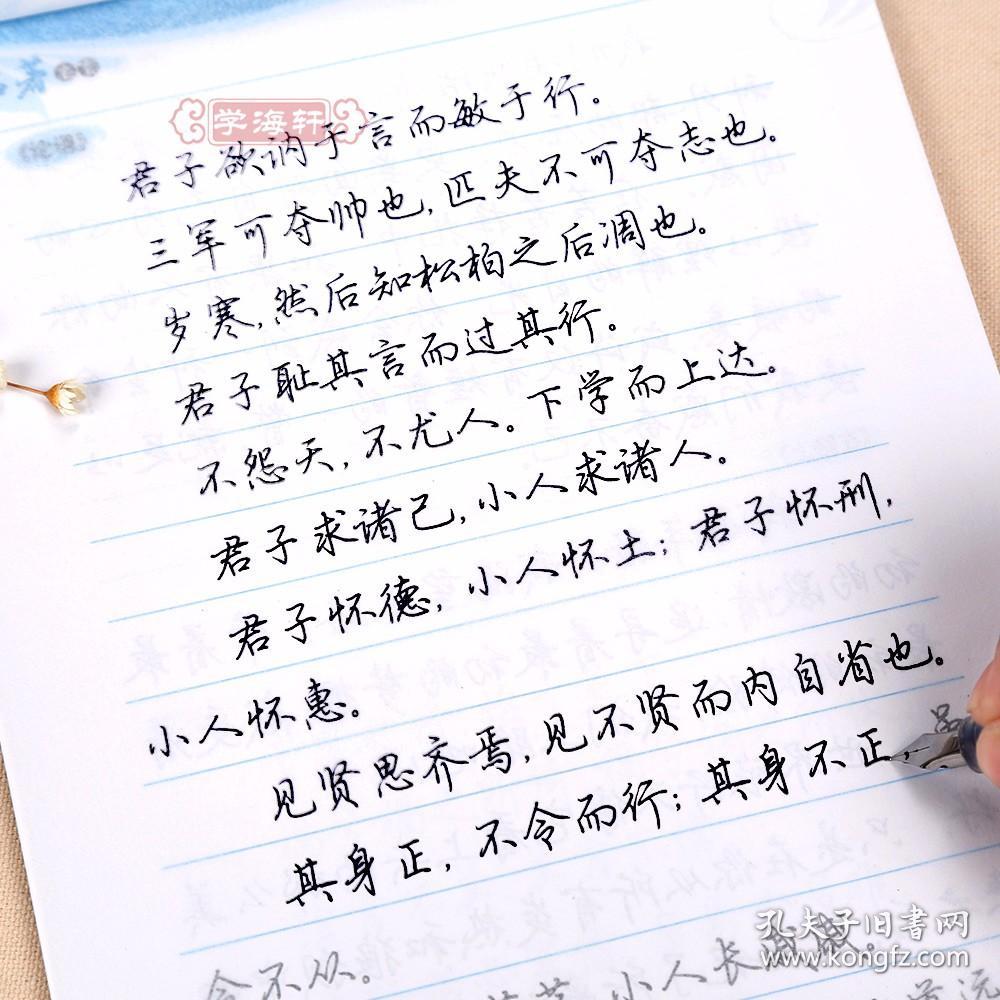 学海轩
君子欲讷于言而敏于行。
三军可夺帅也,匹夫不可夺志也。
岁寒,然后知松柏之后凋也。
君子耻其言而过其行。
不怨天,不尤人。下学而上达。
君子求诸己,小人求诸人。
君子怀德,小人怀土;君子怀刑,
小人怀惠。
见贤思齐焉,见不贤而内自省也。
其身正,不令而行;其身不正,
令不从。
小人长戚戚。
孔夫子旧书网
kongfz.com